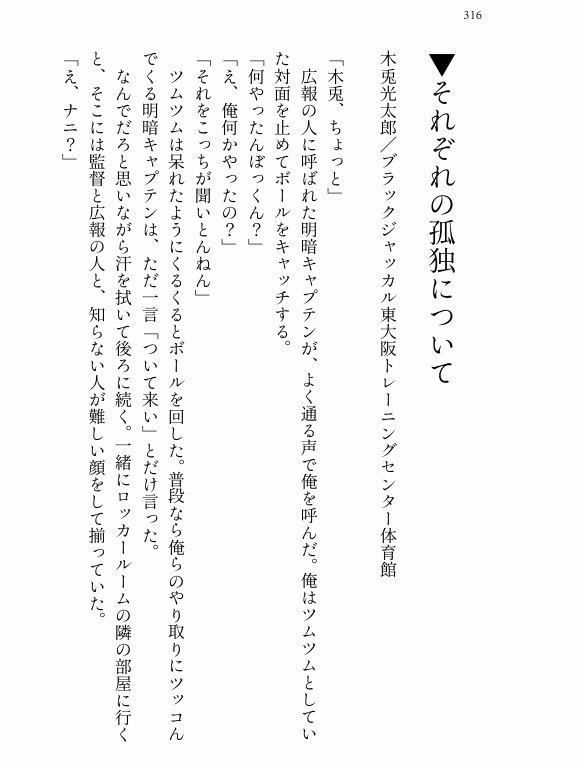 316
▼それぞれの孤独について
木兎光太郎／ブラックジャッカル東大阪トレーニングセンター体育館
「木兎、ちょっと」
　広報の人に呼ばれた明暗キャプテンが、よく通る声で俺を呼んだ。俺はツムツムとしてい
た対面を止めてボールをキャッチする。
「何やったんぼっくん？」
「え、俺何かやったの？」
「それをこっちが聞いとんねん」
　ツムツムは呆れたようにくるくるとボールを回した。普段なら俺らのやり取りにツッコん
でくる明暗キャプテンは、ただ一言「ついて来い」とだけ言った。
　なんでだろと思いながら汗を拭いて後ろに続く。一緒にロッカールームの隣の部屋に行く
と、そこには監督と広報の人と、知らない人が難しい顔をして揃っていた。
「え、ナニ？」